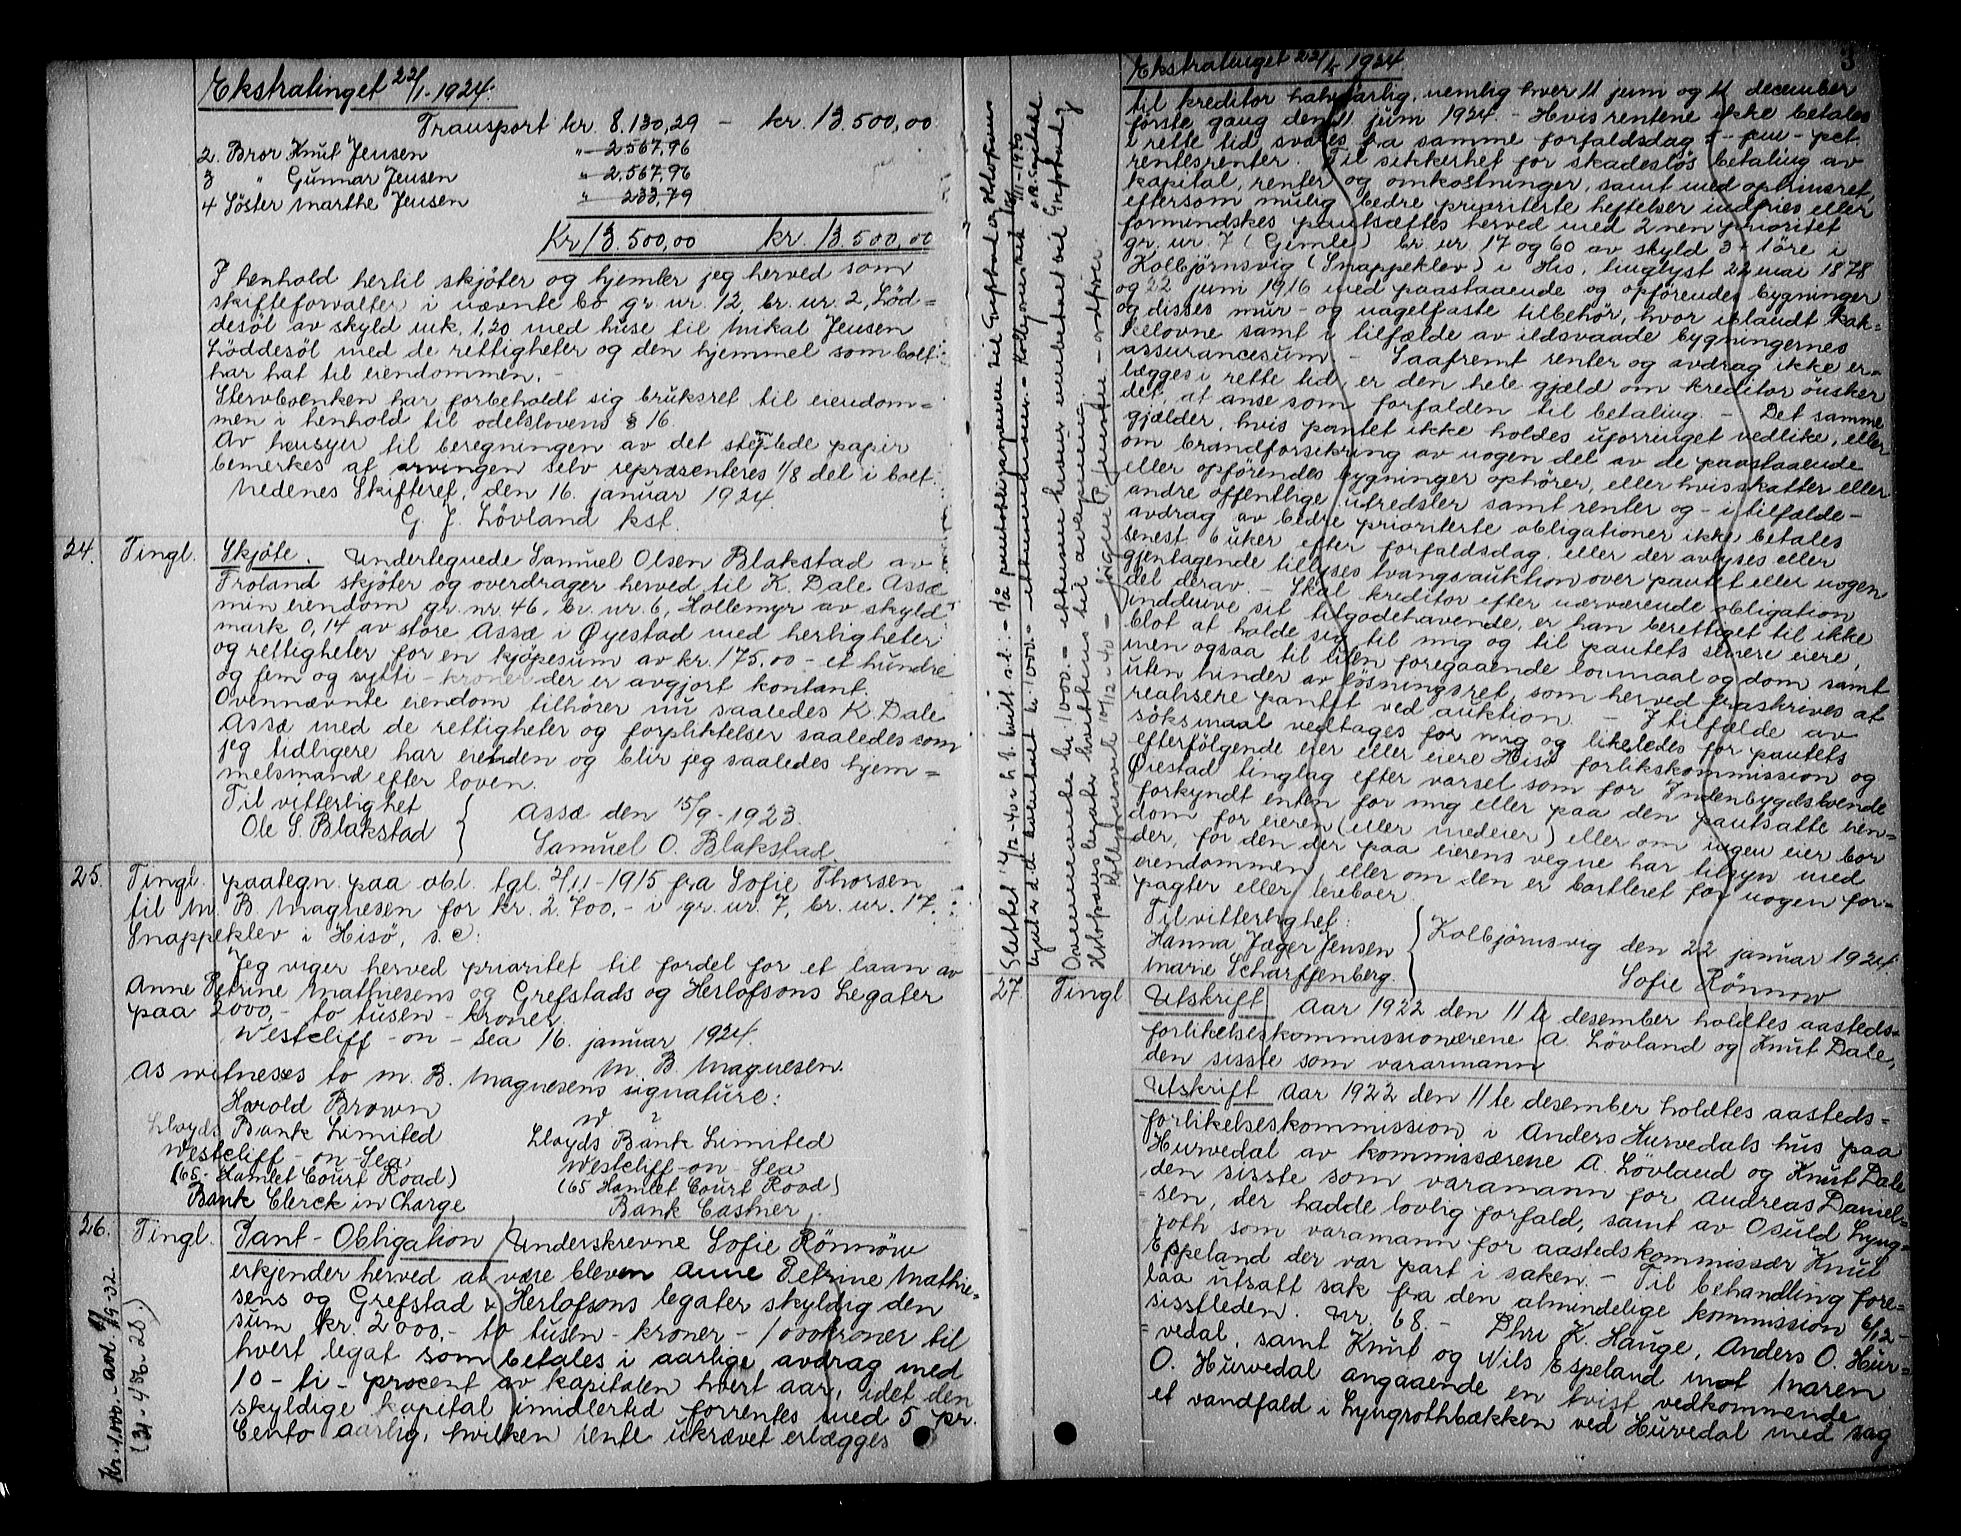 Ekstratinget 22/1-1924.
Transport kr. 8.130,29 - kr. 13.500,00
2. Bror Knut Jensen " 2.567,96
3 " Gunnar Jensen " 2.567,96
4 Söster Marthe Jensen " 233,79
Kr 13.500,00 kr. 13.500,00
I henhold hertil skjöter og hjemler jeg herved som
skifteforvalter i nævnte bo gr. nr. 12, br. nr. 2, Löd=
desöl av skyld mk. 1,20 med huse til Mikal Jensen
Löddesöl med de rettigheter og den hjemmel som boet
har hat til eiendommen. -
Stervboenken har forbeholdt sig bruksret til eiendom=
men i henhold til odelslovens § 16.
Av hensyn til beregningen av det stemplede papir
bemerkes at arvingen selv repræsenteres 1/8 del i boet.
Nedenes Skifteret, den 16. januar 1924.
G. J. Lövland kst.
24. Tingl. Skjöte. Undertegnede Samuel Olsen Blakstad av
Froland skjöter og overdrager herved til K. Dale Assæ
min eiendom gr. nr. 46, br. nr. 6, Hollemyr av skyld
mark 0,14 av store Assæ i Øyestad med herligheter
og rettigheter for en kjöpesum av kr. 175,00 - et hundre
og fem og sytti - kroner der er avgjort kontant.
Ovennævnte eiendom tilhörer nu saaledes K. Dale
Assæ med de rettigheter og forpliktelser saaledes som
jeg tidligere har eienden og blir jeg saaledes hjem=
melsmand efter loven.
Til vitterlighet
Ole S. Blakstad
Assæ den 15/9-1923.
Samuel O. Blakstad
25. Tingl. paategn. paa obl. tgl. 2/11-1915 fra Sofie Thorsen
til M. B Magnesen for kr. 2.700,- i gr. nr. 7, br. nr. 17.
Snappeklev i Hisö, s. c:
Jeg viger herved prioritet til fordel for et laan av
Anne Petrine Mathiesens og Grefstads og Herlofsons Legater
paa 2000,- to tusen - kroner.
Westcliff - on - Sea 16. januar 1924.
M. B. Magnesen.
As witneses to M. B. Magnesens signature:
Harold Brown
Lloyds Bank Limited
Westcliff - on - Sea
(65- Hamlet Court Road)
Bank Clerck in Charge
W ?
Lloyds Bank Limited
Westcliff-on-Sea
(65 Hamlet Court Road)
Bank Cashier.
26. Tingl. Pant-Obligation Underskrevne Sofie Rönnöw
erkjender herved at være bleven Anne Petrine Mathie=
sens og Grefstad & Herlofsons legater skyldig den
sum kr. 2000,- to tusen - kroner - 1000 kroner til
hvert legat som betales i aarlige avdrag med
10 - ti - procent av kapitalen hvert aar, idet den
skyldige kapital imidlertid forrentes med 5 pr.
Cento aarlig, hvilken rente ukrævet erlægges
Kr. 1.000.- avl. /9-32.
Ekstratinget 22/1 1924
3
til kreditor halvaarlig, nemlig hver 11 juni og 11 december
förste gang den 11 juni 1924. - Hvis rentene ikke betales
i rette tid, svares fra samme forfaldsdag 5 - fem - pct.
rentesrenter. Til sikkerhet for skadeslös betaling av
kapital, renter og omkostninger, samt med optrinsret,
eftersom mulig bedre prioriterte heftelser indfries eller
formindskes pantsættes herved med 2nen prioritet
gr. nr. 7 (Gimle) br. nr. 17 og 60 av skyld 3 + 1 öre i
Kolbjörnsvig (Snappeklev) i His, tinglyst 22 mai 1878
og 22 juni 1916 med paastaaende og opförendes bygninger
og disses mur- og nagelfaste tilbehör, hvor iblandt kak=
kelovne samt i tilfælde av ildsvaade bygningernes
assurancesum. - Saafremt renter og avdrag ikke er=
lægges i rette tid, er den hele gjæld om kreditor önsker
det, at anse som forfalden til betaling. - Det samme
gjælder, hvis pantet ikke holdes uforringet vedlike, eller
om brandforsikring av nogen del av de paastaaende
eller opförendes bygninger ophörer, eller hvis skatter eller
andre offentlige utredsler samt renter og - i tilfælde -
avdrag av bedre prioriterte obligationer ikke betales
senest 6 uker efter forfaldsdag eller der avlyses eller
gjentagende tillyses tvangsauktion over pantet eller nogen
del derav. - Skal kreditor efter nærværende obligation
inddrive sit tilgodehavende, er han berettiget til ikke
blot at holde sig til mig og til pantets senere eiere,
men ogsaa til uten foregaaende lovmaal og dom samt
uten hinder av lösningsret, som herved fraskrives at
realisere pantet ved auktion. - I tilfælde av
söksmaal vedtages for mig og likeledes for pantets
efterfölgende eier eller eiere Hisö forlikskommission og
Öiestad tinglag efter varsel som for Indenbygdsboende
forkyndt enten for mig eller paa den pantsatte eien=
dom for eieren (eller medeier) eller om ingen eier bor
der, for den der paa eierens vegne har tilsyn med
eiendommen eller om den er bortleiet for nogen for=
pagter eller leieboer.
Til vitterlighet:
Hanna Jæger Jensen
Marie Scharffenberg.
Kolbjörnsvig den 22 januar 1924
Sofie Rönnow
27. Tingl Utskrift Aar 1922 den 11te desember holdtes aasteds=
forlikelseskommissionærene A. Lövland og Knut Dale,
den sisste som vararmann
Utskrift Aar 1922 den 11te desember holdtes aasteds=
forlikelseskommission i Anders Hurvedals hus paa
Hurvedal av kommissærene A. Lövland og Knut Dale
den sisste som varamann for Andreas Daniel=
sen, der hadde lovlig forfald, samt av Osuld Lyng=
roth som varamann for aastedskommissær Knut
Eppeland der var part i saken. - Til behandling fore=
laa utsatt sak fra den almindelige kommission 6/12
sisstleden. nr. 68. - Dhrr K. Hauge, Anders O. Hur=
vedal, samt Knut og Nils Espeland mot Maren
O. Hurvedal angaaende en tvist vedkommende
et vandfald i Lyngrothbækken ved Hurvedal med sag